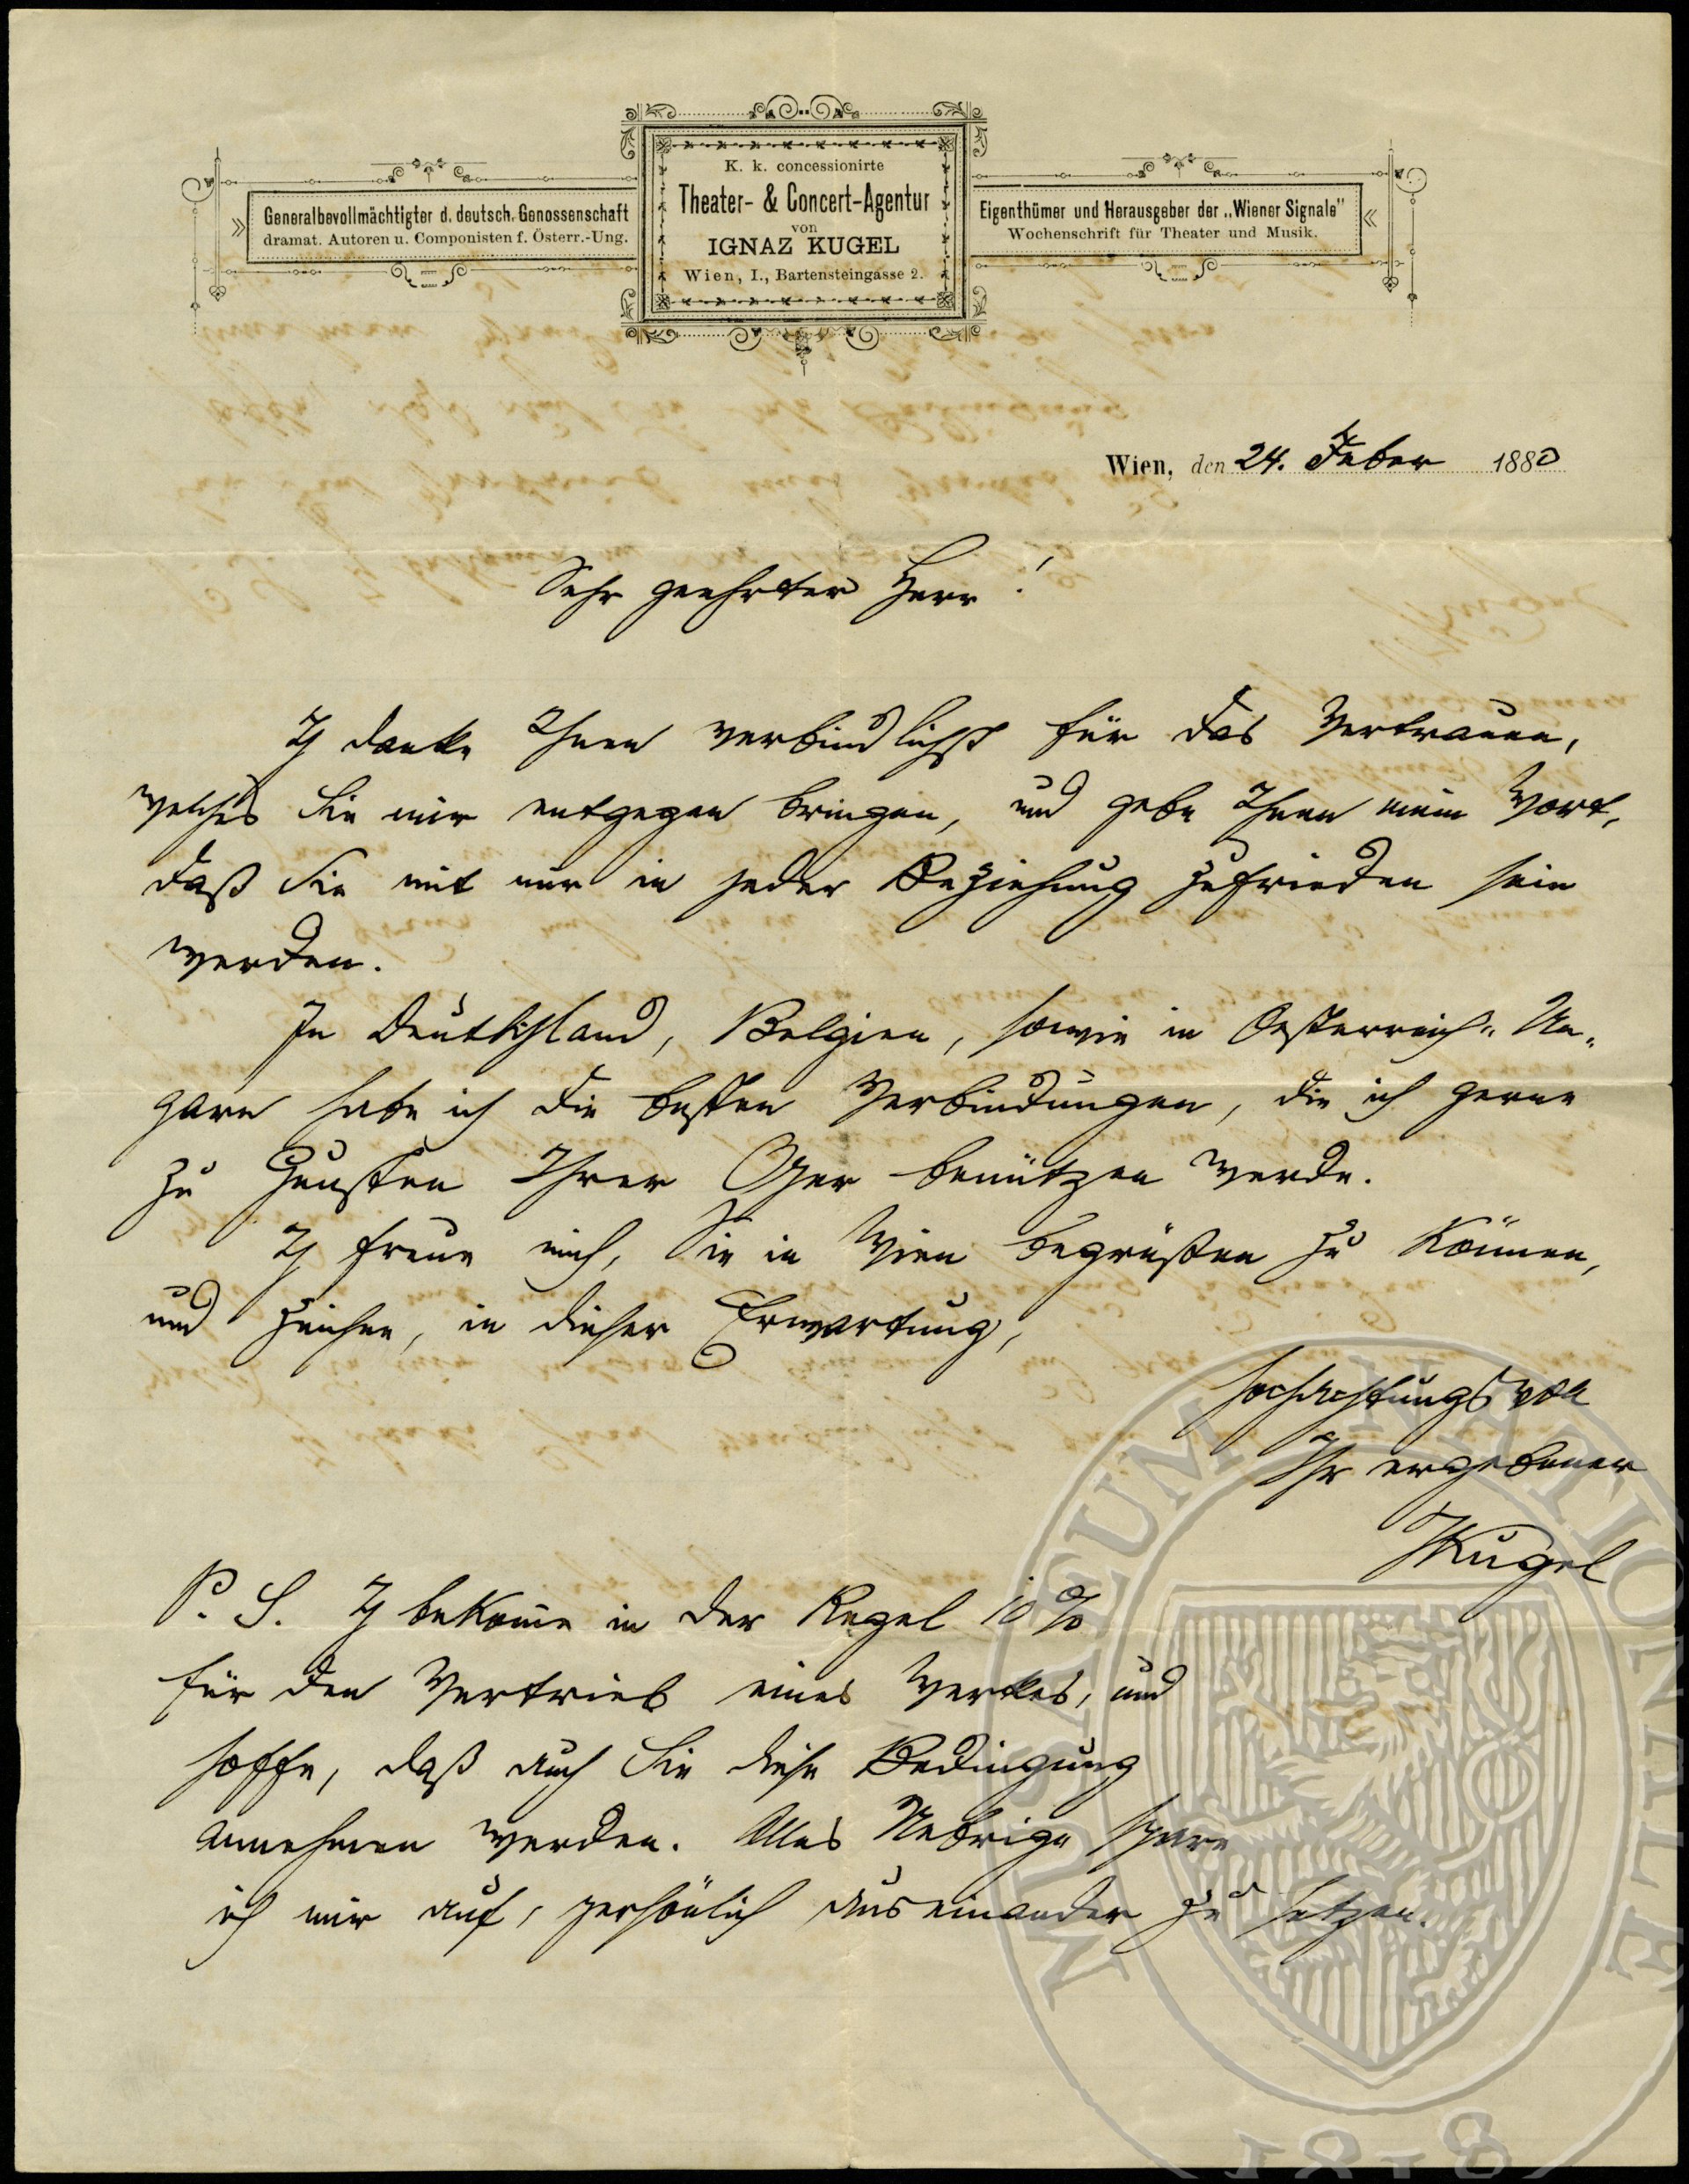 K. k. concessionirte
Theater- & Concert-Agentur
von
IGNAZ KUGEL
Wien, I., Bartensteingasse 2.
Generalbevollmächtigter d. deutsch. Genossenschaft
dramat. Autoren u. Componisten f. Österr.-Ung.
Eigenthümer und Herausgeber der „Wiener Signale"
Wochenschrift für Theater und Musik.
Wien, den 24. Feber 1880
Sehr geehrter Herr!
Ich danke Ihnen verbindlichst für das Vertrauen,
welches Sie mir entgegen bringen, und gebe Ihnen mein Wort,
daß Sie mit mir in jeder Beziehung zufrieden sein
werden.
In Deutschland, Belgien, sowie in Oesterreich-Un-
garn habe ich die besten Verbindungen, die ich gerne
zu Gunsten Ihrer Oper benützen werde.
Ich freue mich, Sie in Wien begrüßen zu können,
und zeichne, in dieser Erwartung,
hochachtungsvoll
Ihr ergebener
IKugel
P. S. Ich bekome in der Regel 10%
für den Vertrieb eines Werkes, und
hoffe, daß auch Sie diese Bedingung
annehmen werden. Alles Uebrige spare
ich mir auf, persönlich auseinander zu setzen.
MUSAEUM NATIONALE
1818